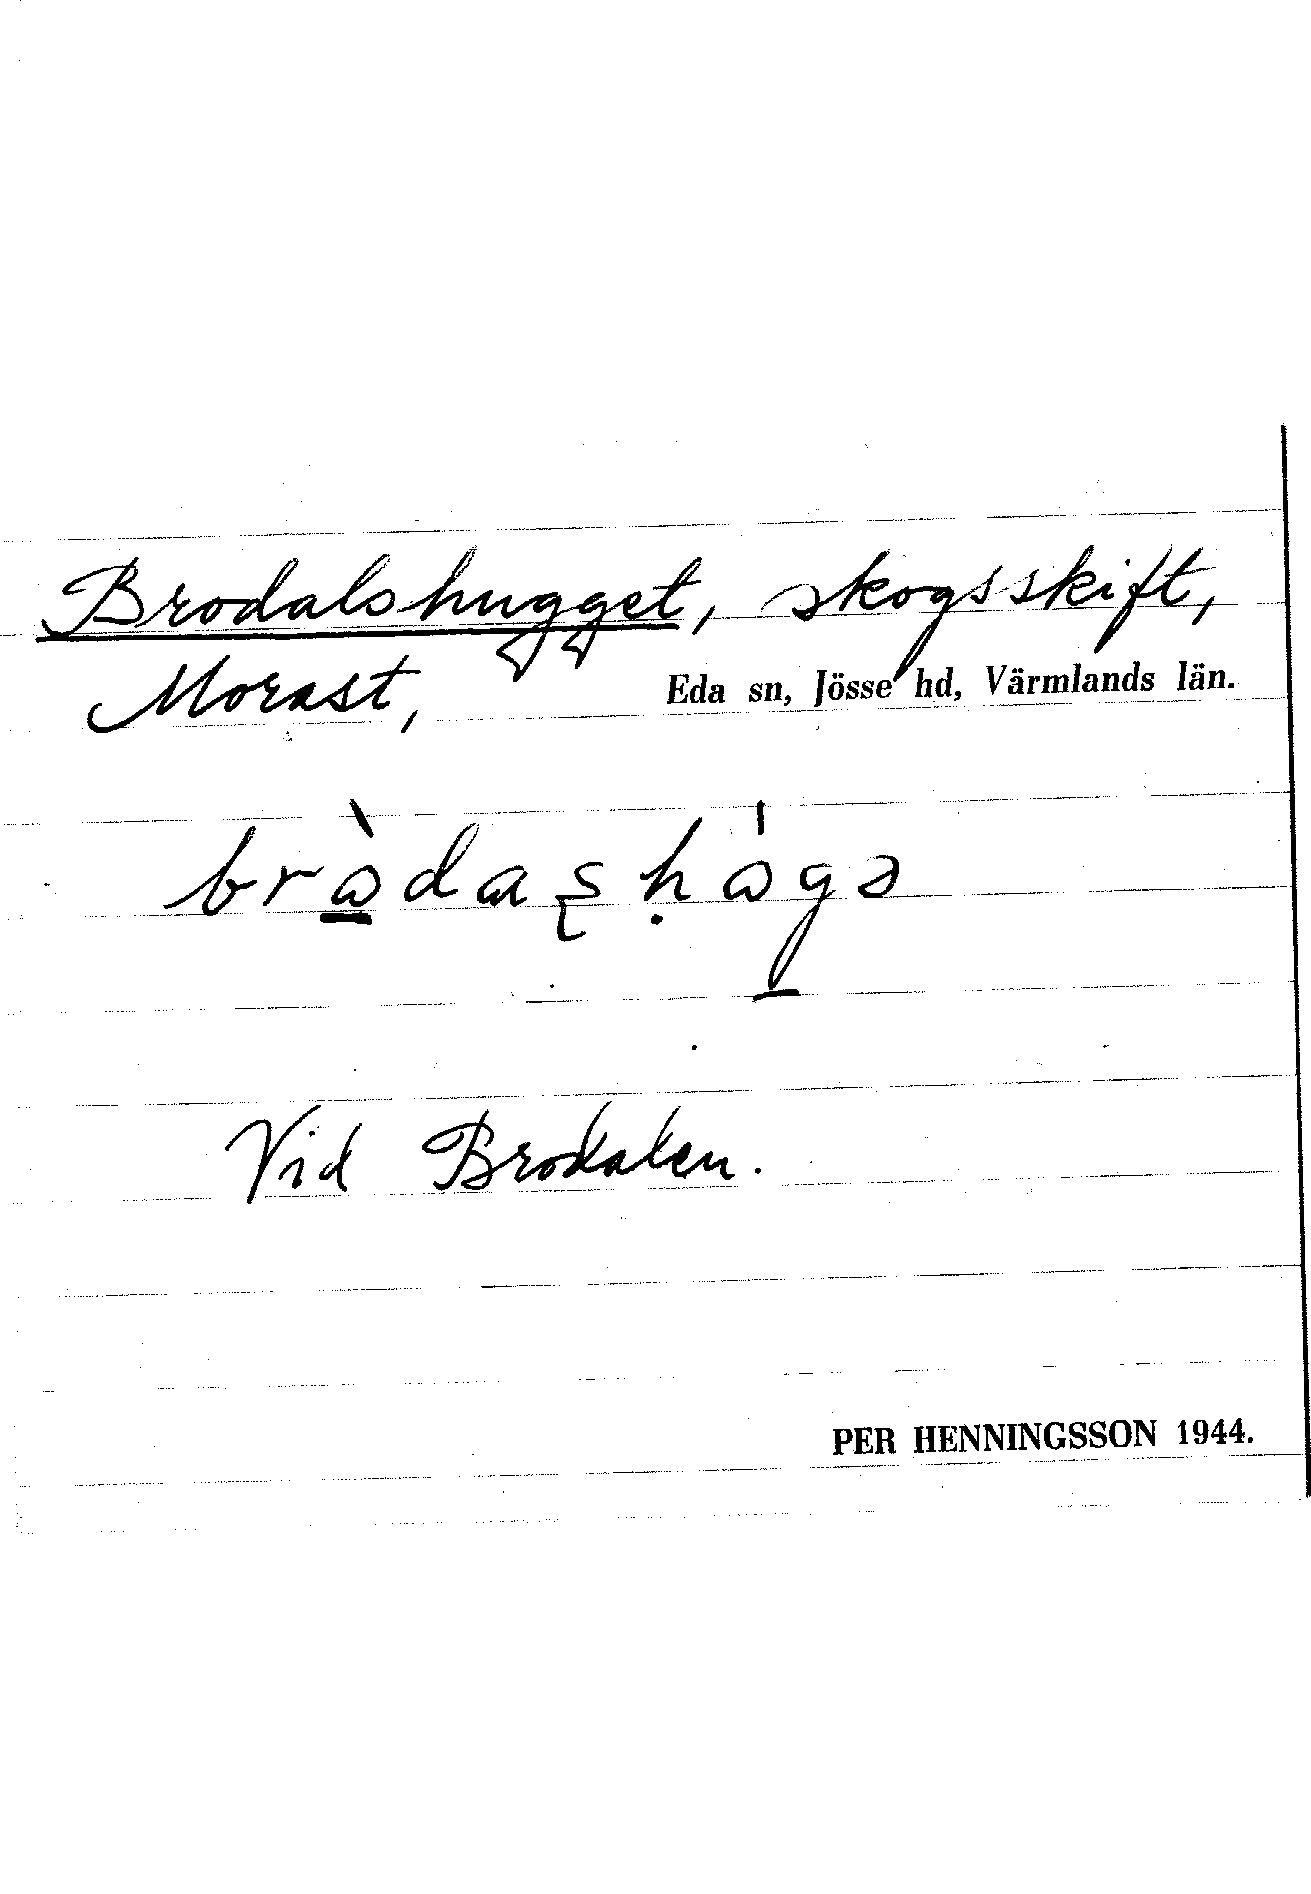 Brodalshugget, skogsskift,
Morast, Eda sn, Jösse hd, Värmlands län.
bròdaʂhógə
Vid Brodalen.
PER HENNINGSSON 1944.